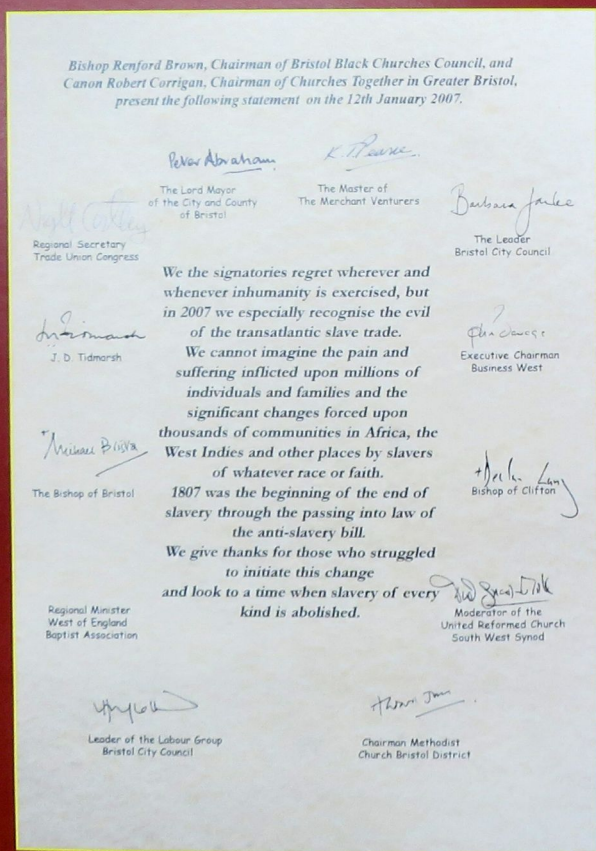 Bishop Renford Brown, Chairman of Bristol Black Churches Council, and
Canon Robert Corrigan, Chairman of Churches Together in Greater Bristol,
present the following statement on the 12th January 2007.
Peter Abraham
The Lord Mayor
of the City and County
of Bristol
The Master of
The Merchant Venturers
Regional Secretary
Trade Union Congress
Barbara Janke
The Leader
Bristol City Council
We the signatories regret wherever and
whenever inhumanity is exercised, but
in 2007 we especially recognise the evil
of the transatlantic slave trade.
We cannot imagine the pain and
suffering inflicted upon millions of
individuals and families and the
significant changes forced upon
thousands of communities in Africa, the
West Indies and other places by slavers
of whatever race or faith.
1807 was the beginning of the end of
slavery through the passing into law of
the anti-slavery bill.
We give thanks for those who struggled
to initiate this change
and look to a time when slavery of every
kind is abolished.
J. D. Tidmarsh
Executive Chairman
Business West
Michael Bristol
The Bishop of Bristol
Declan Lang
Bishop of Clifton
Regional Minister
West of England
Baptist Association
Moderator of the
United Reformed Church
South West Synod
Leader of the Labour Group
Bristol City Council
Chairman Methodist
Church Bristol District